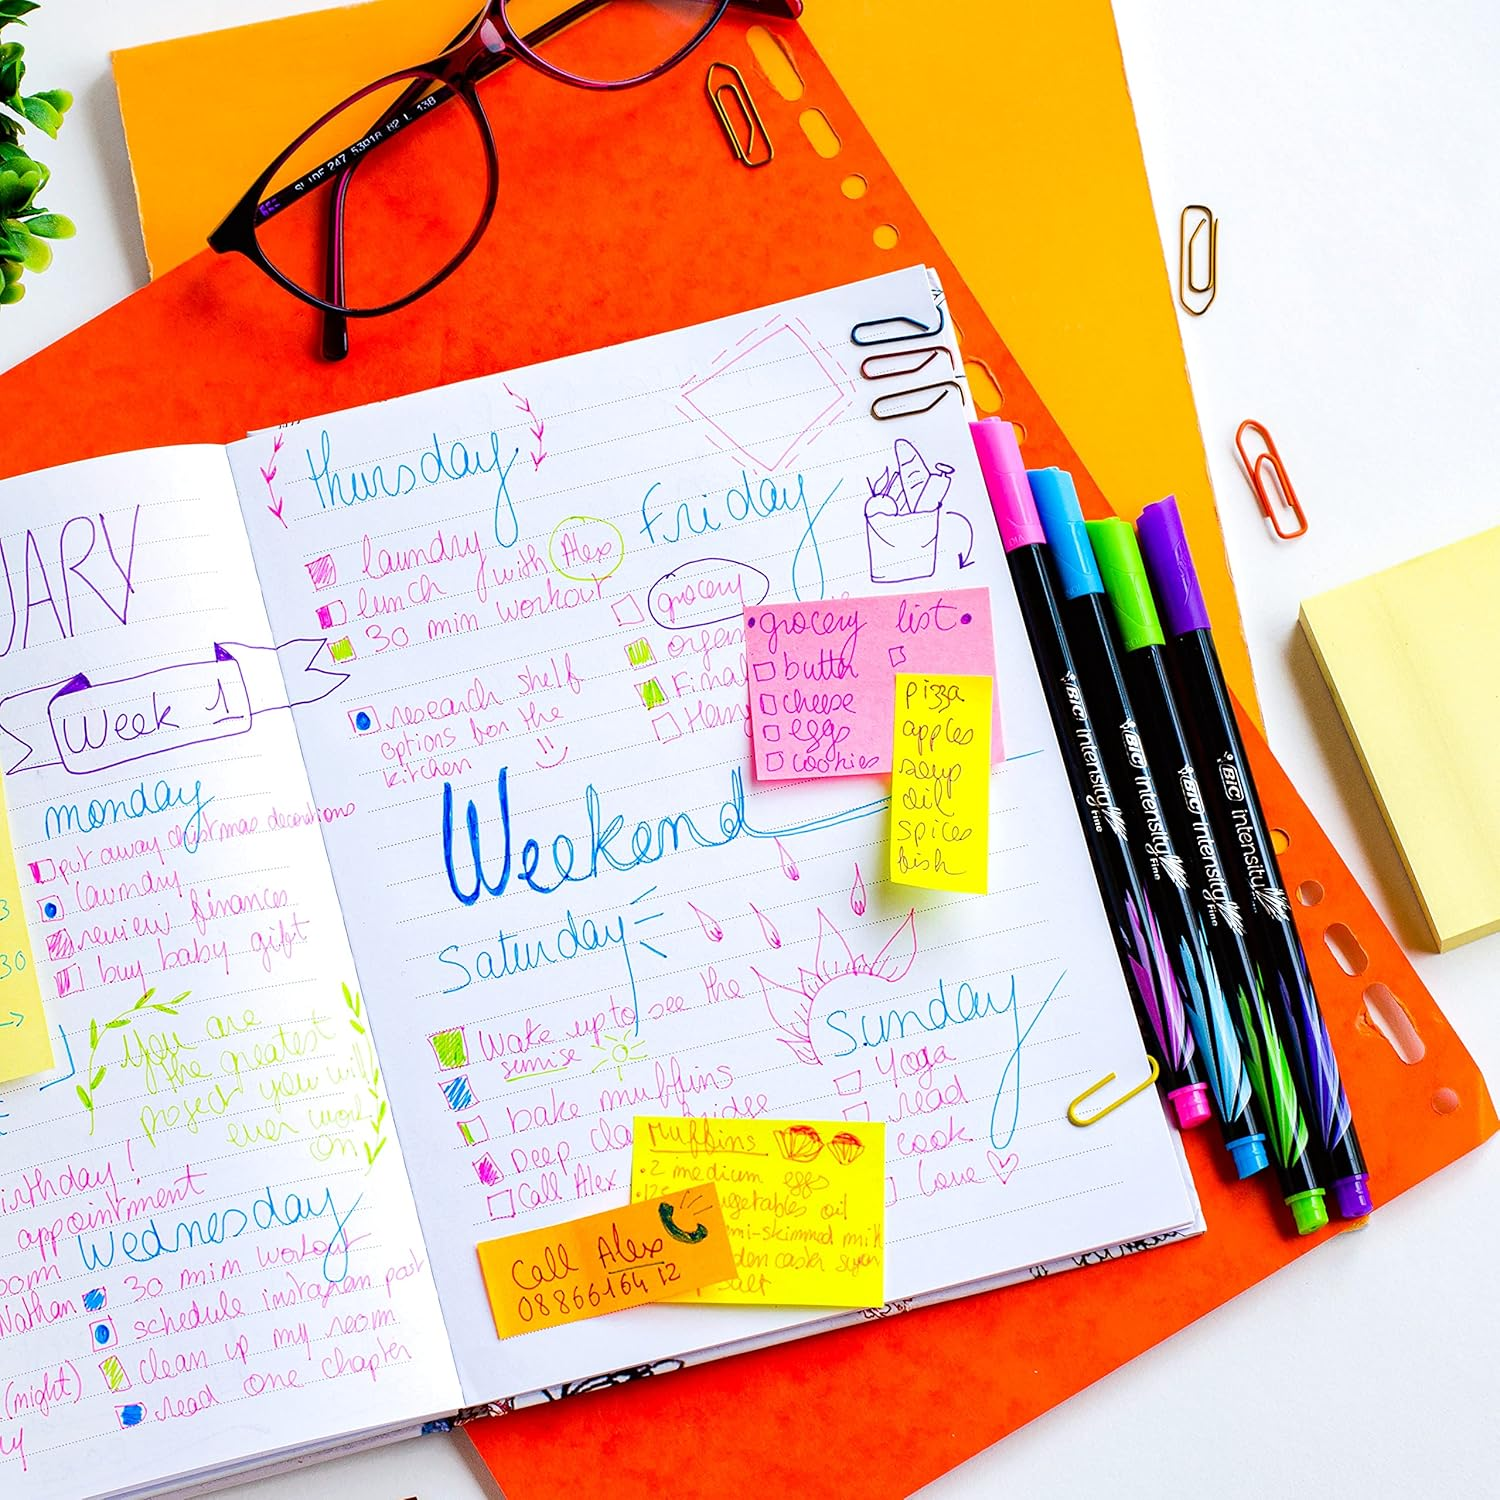 SLIDE 247 53□18 B2 L 138
UARY
Week 1
monday
put away christmas decorations
laundry
review finances
buy baby gift
You are
the greatest
project you will
ever work
on
irthday!
appointment
oom
Nathan
(night)
Wednesday
30 min workout
schedule instagram post
clean up my room
read one chapter
3
30
thursday
laundry
lunch with Alex
30 min workout
research shelf
options for the
kitchen
Friday
grocery
organ
Final
grocery list
butter
cheese
eggs
cookies
pizza
apples
soup
oil
spices
fish
Weekend
Saturday
Wake up to see the
sunrise
bake muffins
Deep clea
fridge
Call Alex
Sunday
Yoga
read
cook
Love
Muffins
2 medium eggs
getables oil
mi-skimmed milk
den caster sugar
salt
Call Alex
0886616412
BIC intensity Fine
BIC intensity Fine
BIC intensity Fine
BIC intensity